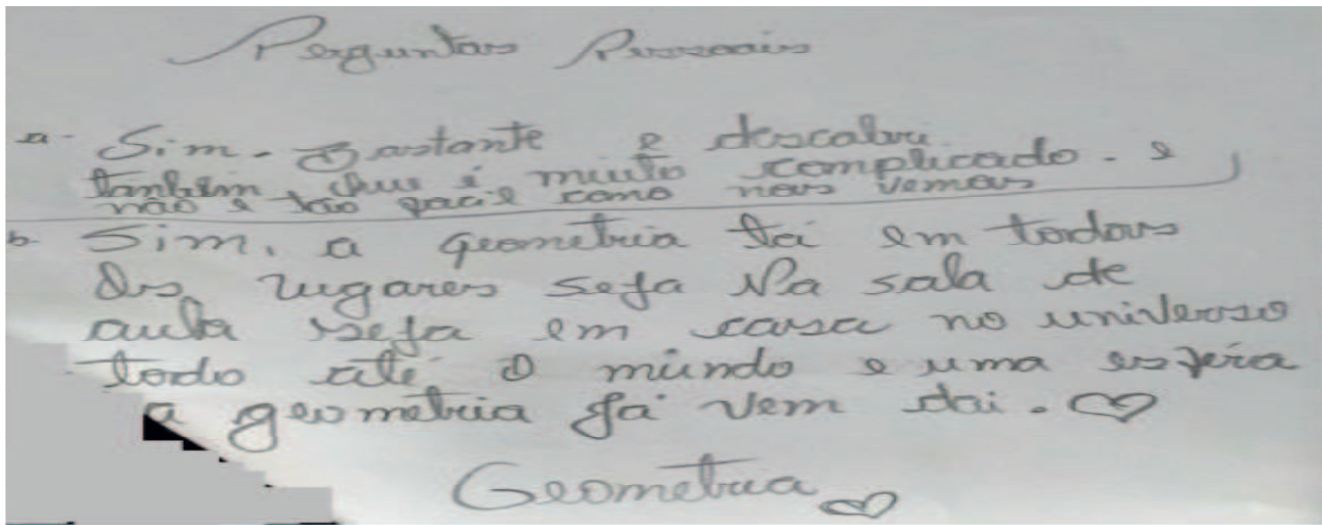 Perguntas Pessoais
a- Sim. Bastante e descobri
também que é muito complicado. e
não é tão facil como nos vemos
b- Sim, a geometria tá em todos
Os lugares seja Na sala de
aula seja em casa no universo
todo até O mundo e uma esfera
a geometria já vem dai. ♡
Geometria ♡